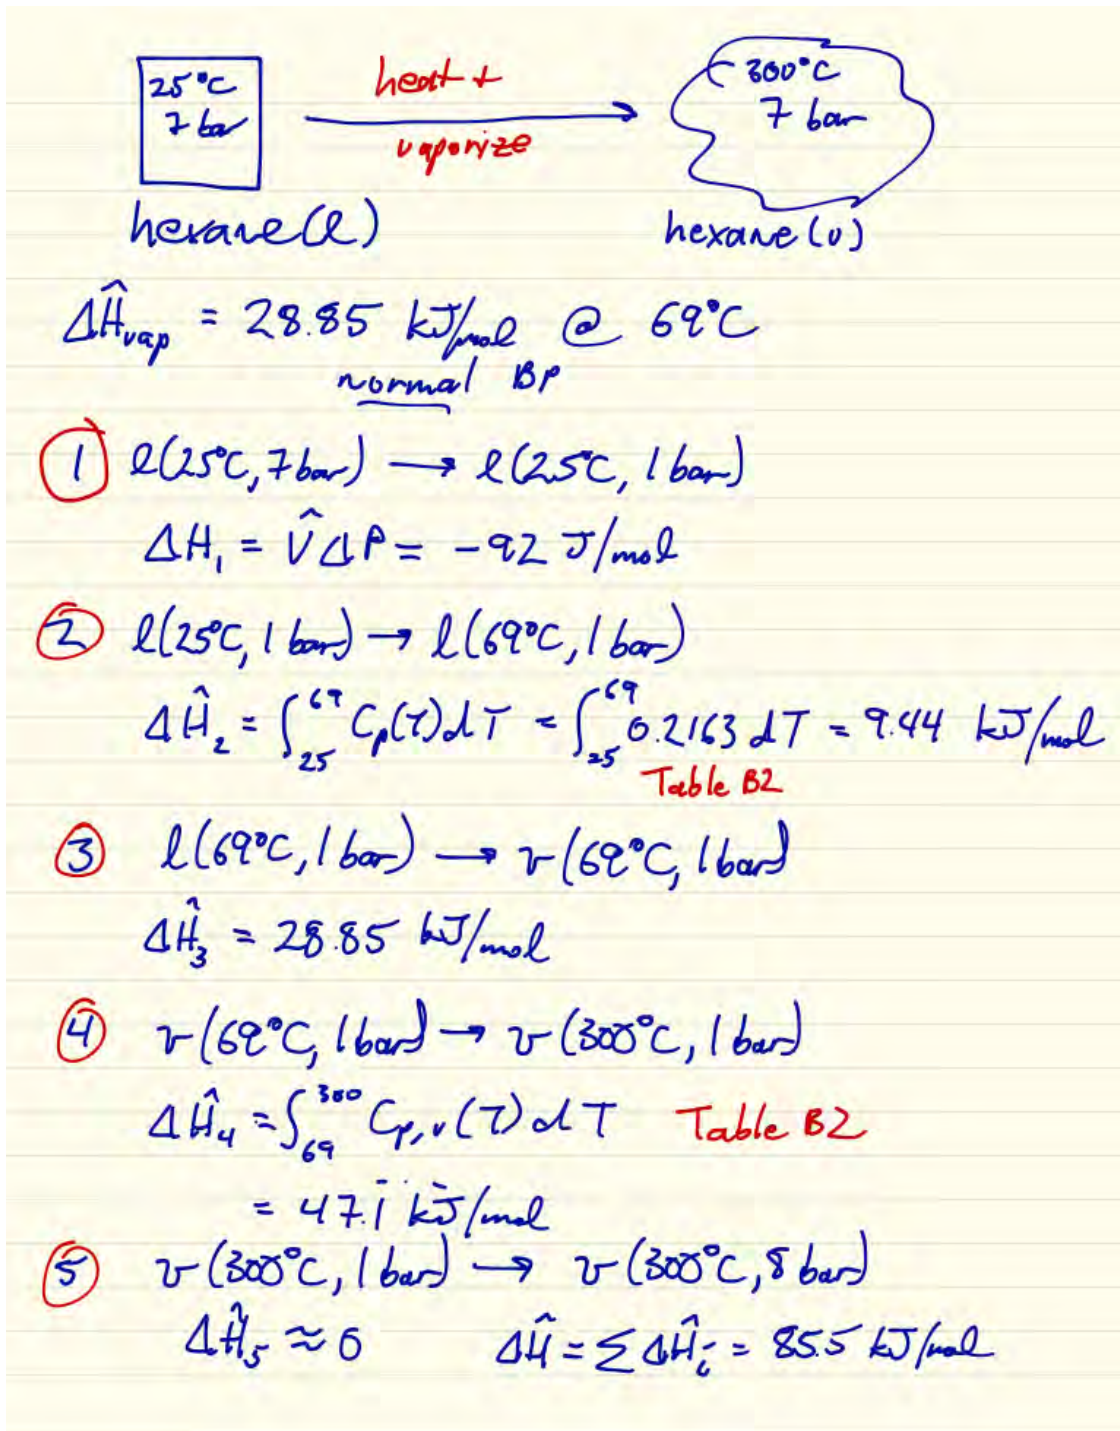 25°C
7 bar
heat +
vaporize
300°C
7 bar
hexane(l)
hexane(v)
ΔĤvap = 28.85 kJ/mol @ 69°C
normal BP
① l(25°C, 7bar) → l(25°C, 1 bar)
ΔH₁ = V̂ΔP = -92 J/mol
② l(25°C, 1 bar) → l(69°C, 1 bar)
ΔĤ₂ = ∫₂₅⁶⁹ Cp(T)dT = ∫₂₅⁶⁹ 0.2163 dT = 9.44 kJ/mol
Table B2
③ l(69°C, 1 bar) → v(69°C, 1 bar)
ΔĤ₃ = 28.85 kJ/mol
④ v(69°C, 1 bar) → v(300°C, 1 bar)
ΔĤ₄ = ∫₆₉³⁰⁰ Cp,v(T)dT Table B2
= 47.1 kJ/mol
⑤ v(300°C, 1 bar) → v(300°C, 8 bar)
ΔĤ₅ ≈ 0 ΔĤ = ΣΔĤᵢ = 85.5 kJ/mol